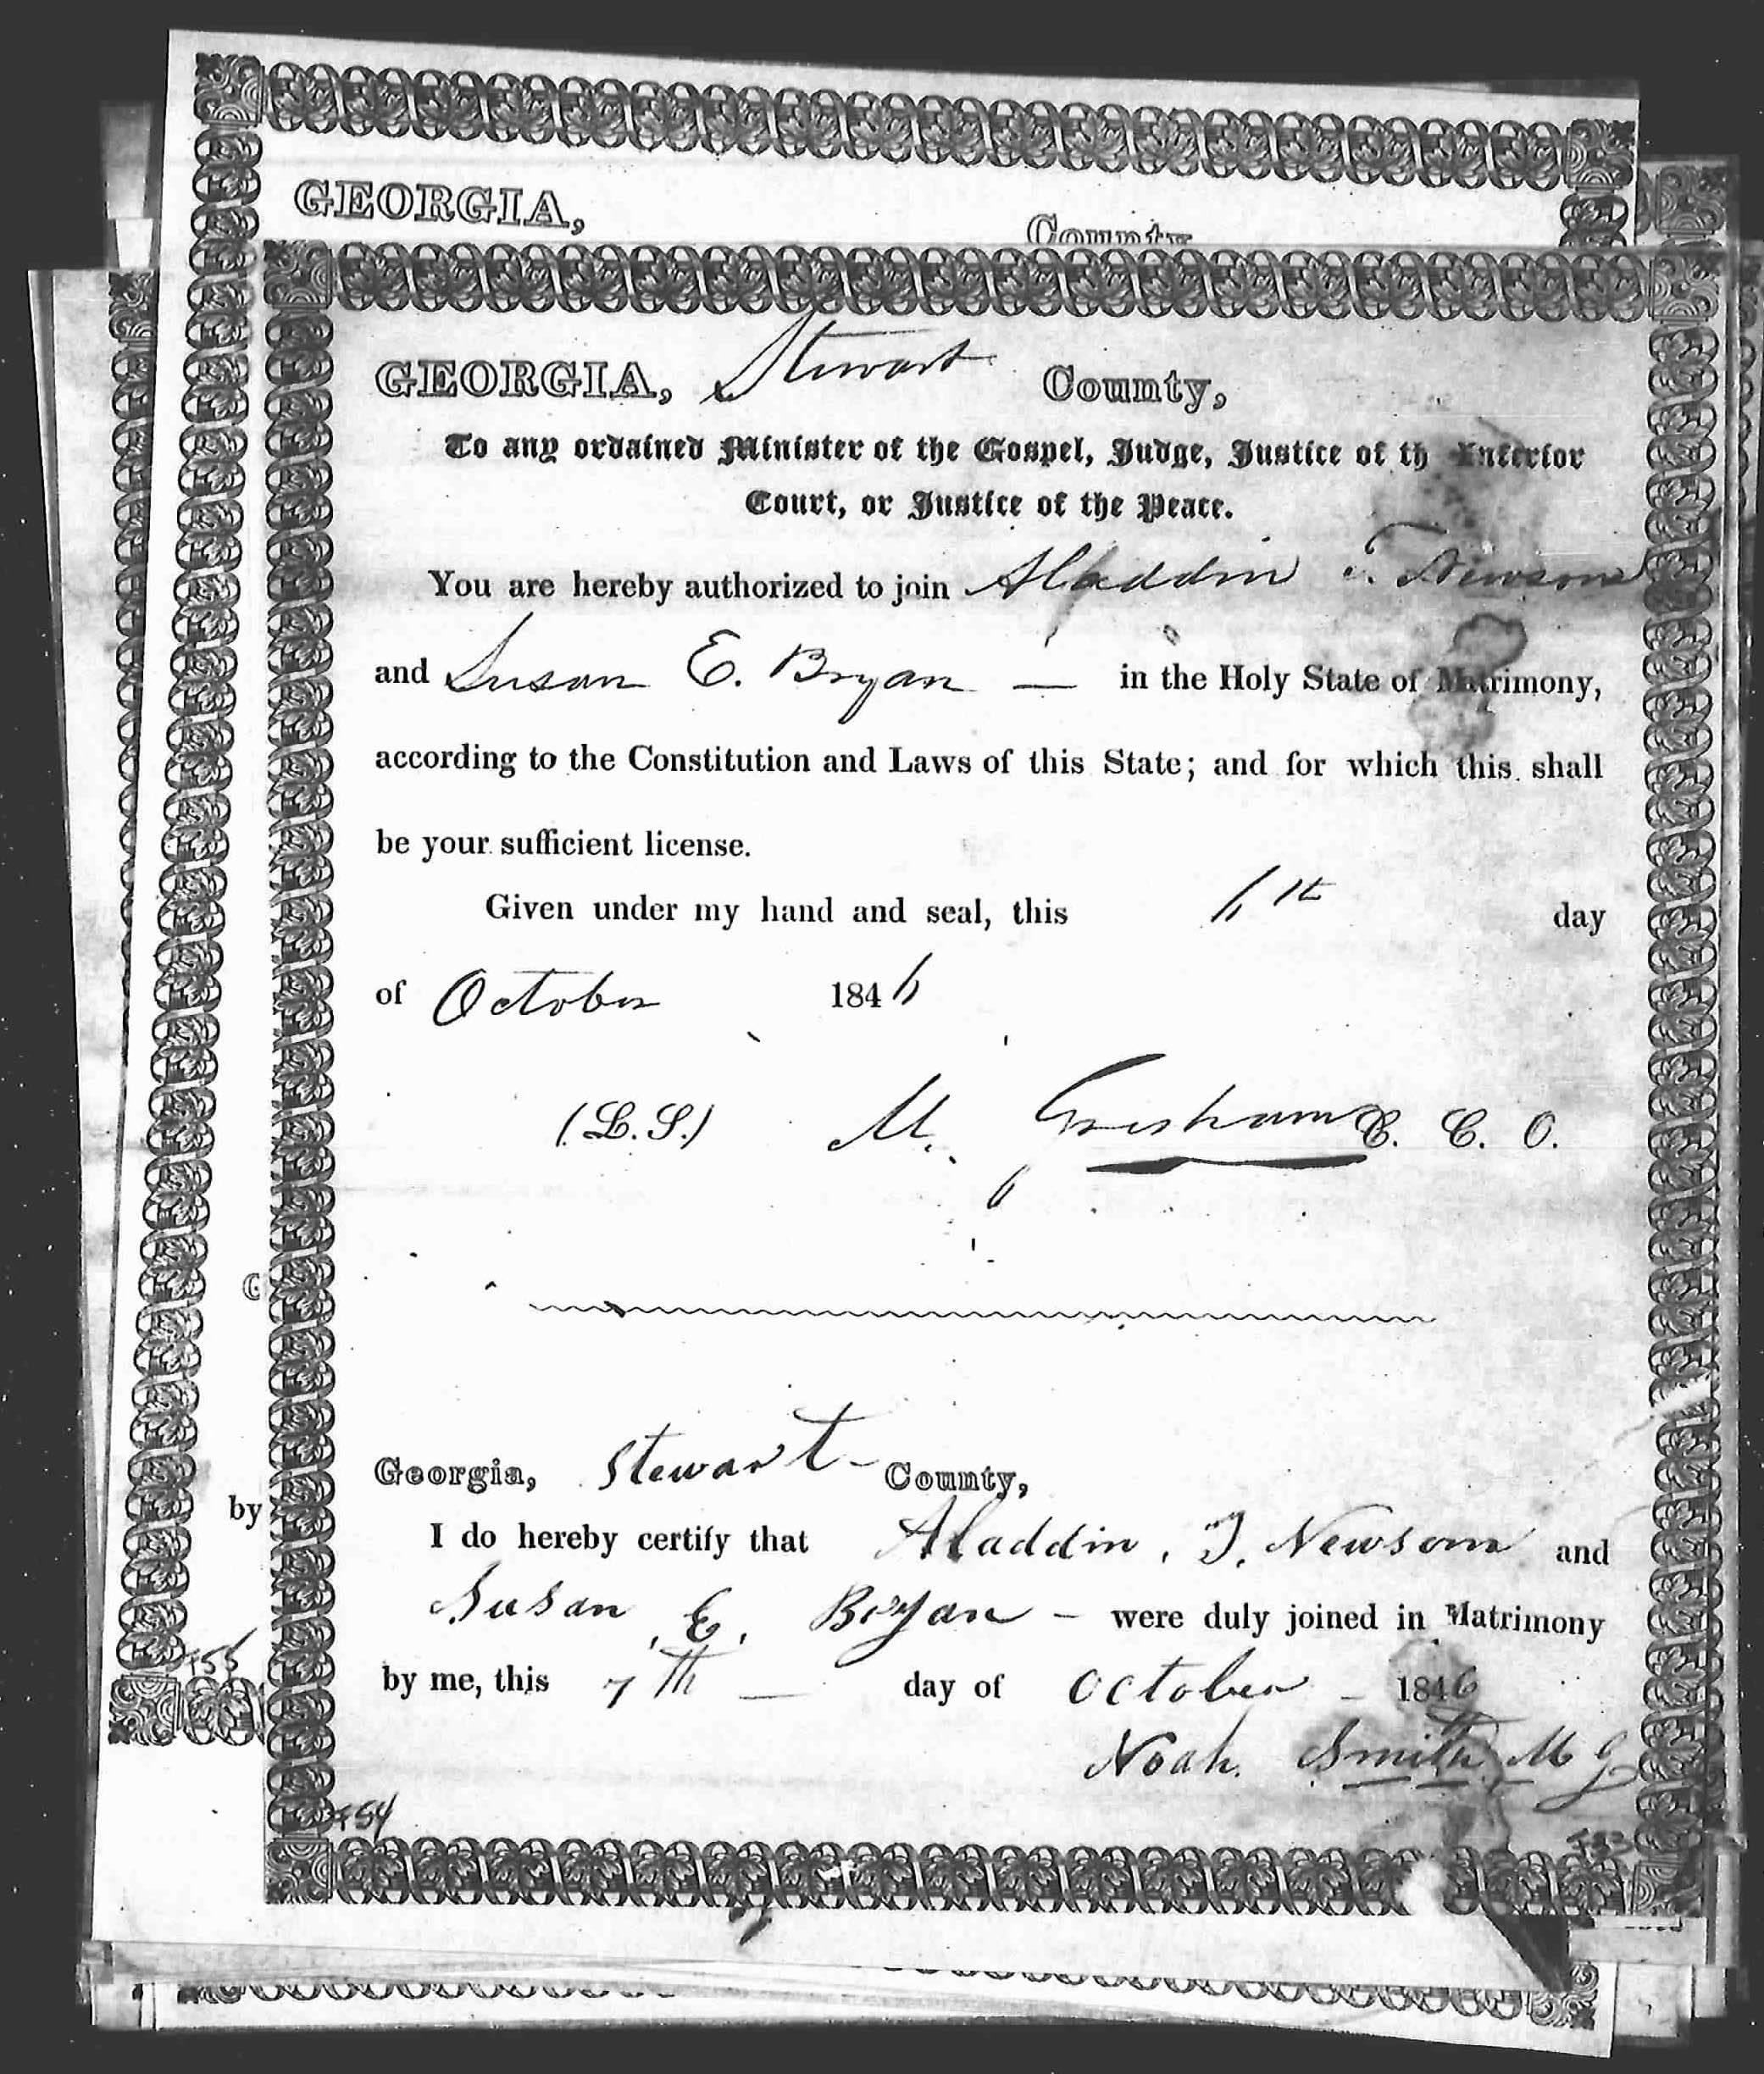 GEORGIA,
County
GEORGIA, Stewart County,
To any ordained Minister of the Gospel, Judge, Justice of th Inferior
Court, or Justice of the Peace.
You are hereby authorized to join Aladdin T. Newsom
and Susan E. Bryan — in the Holy State of Matrimony,
according to the Constitution and Laws of this State; and for which this shall
be your sufficient license.
Given under my hand and seal, this 6th day
of October 1846
(L.S.) M. Gresham C. C. O.
Georgia, Stewart County,
I do hereby certify that Aladdin, T. Newsom and
by
Susan, E, Bryan – were duly joined in Matrimony
by me, this 7th — day of October – 1846
Noah. Smith M G